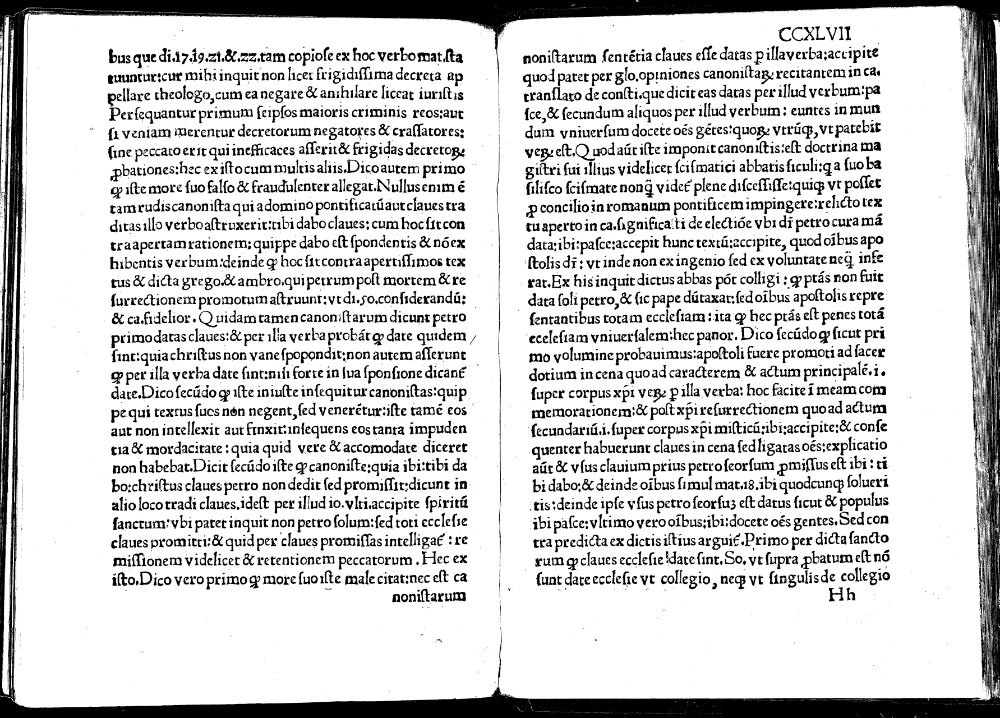 bus que di.17.19.21.&.22.tam copiose ex hoc verbo mat.sta
tuuntur:cur mihi inquit non licet frigidissima decreta ap
pellare theologo,cum ea negare & anihilare liceat iuristis
Persequantur primum seipsos maioris criminis reos:aut
si veniam merentur decretorum negatores & crassatores:
sine peccato erit qui inefficaces asserit & frigidas decretoꝝ
ꝓbationes:hec ex isto cum multis aliis.Dico autem primo
ꝙ iste more suo falso & fraudulenter allegat.Nullus enim ē
tam rudis canonista qui a domino pontificatū aut claues tra
ditas illo verbo astruxerit:tibi dabo claues:cum hoc sit con
tra apertam rationem;quippe dabo est spondentis & nō ex
hibentis verbum:deinde ꝙ hoc sit contra apertissimos tex
tus & dicta grego.& ambro.qui petrum post mortem & re
surrectionem promotum astruunt:vt di.50.considerandū:
& ca.fidelior. Quidam tamen canonistarum dicunt petro
primo datas claues:& per illa verba probāt ꝙ date quidem
sint:quia christus non vane spopondit:non autem asserunt
ꝙ per illa verba date sint:nisi forte in sua sponsione dicanť
date.Dico secūdo ꝙ iste iniuste insequitur canonistas:quip
pe qui textus sucs non negent,sed venerētur:iste tamē eos
aut non intellexit aut finxit:insequens eos tanta impuden
tia & mordacitate : quia quid vere & accomodate diceret
non habebat.Dicit secūdo iste ꝙ canoniste:quia ibi:tibi da
bo:christus claues petro non dedit sed promissit:dicunt in
alio loco tradi claues.idest per illud io.vlti.accipite spiritū
sanctum:vbi patet inquit non petro solum:sed toti ecclesie
claues promitti:& quid per claues promissas intelligať : re
missionem videlicet & retentionem peccatorum. Hec ex
isto.Dico vero primo ꝙ more suo iste male citat:nec est ca
nonistarum
CCXLVII
nonistarum sentētia claues esse datas ꝑ illa verba;accipite
quod patet per glo.opiniones canonistaꝝ recitantem in ca.
translato de consti.que dicit eas datas per illud verbum:pa
sce,& secundum aliquos per illud verbum: euntes in mun
dum vniuersum docete oēs gētes:quoꝝ vtrūꝗ, vt patebit
veꝝ est. Quod aūt iste imponit canonistis:est doctrina ma
gistri sui videlicet scismatici abbatis siculi:ꝗ a suo ba
silisco scismate nonꝗ̄ videť plene discessisse:quiꝗ vt posset
ꝓ concilio in romanum pontificem impingere:relicto tex
tu aperto in ca.significa ti de electiōe vbi dr̄ petro cura mā
data:ibi:pasce:accepit hunc textū:accipite, quod oībus apo
stolis dr̄: vt inde non ex ingenio sed ex voluntate neꝗ̄ infe
rat.Ex his inquit dictus abbas pōt colligi : ꝙ ptās non fuit
data soli petro,& sic pape dūtaxat:sed oībus apostolis repre
sentantibus totam ecclesiam : ita ꝙ hec ptās est penes totā
ecclesiam vniuersalem:hec panor. Dico secūdo ꝙ sicut pri
mo volumine probauimus:apostoli fuere promoti ad sacer
dotium in cena quo ad caracterem & actum principalē.i.
super corpus xp̄i veꝝ ꝑ illa verba: hoc facite ī meam com
memorationem:& post xp̄i resurrectionem quo ad actum
secundariū.i.super corpus xp̄i misticū:ibi:accipite:& conse
quenter habuerunt claues in cena sed ligatas oēs:explicatio
aūt & vsus clauium prius petro seorsum ꝓmissus est ibi : ti
bi dabo;& deinde oībus simul mat.18.ibi quodcunꝗ solueri
tis:deinde ipse vsus petro seorsuꝫ est datus sicut & populus
ibi pasce:vltimo vero oībus:ibi:docete oēs gentes. Sed con
tra predicta ex dictis istius arguiť. Primo per dicta sancto
rum ꝙ claues ecclesie date sint. So. vt supra ꝓbatum est nō
sunt date ecclesie vt collegio, neꝗ vt singulis de collegio
Hh